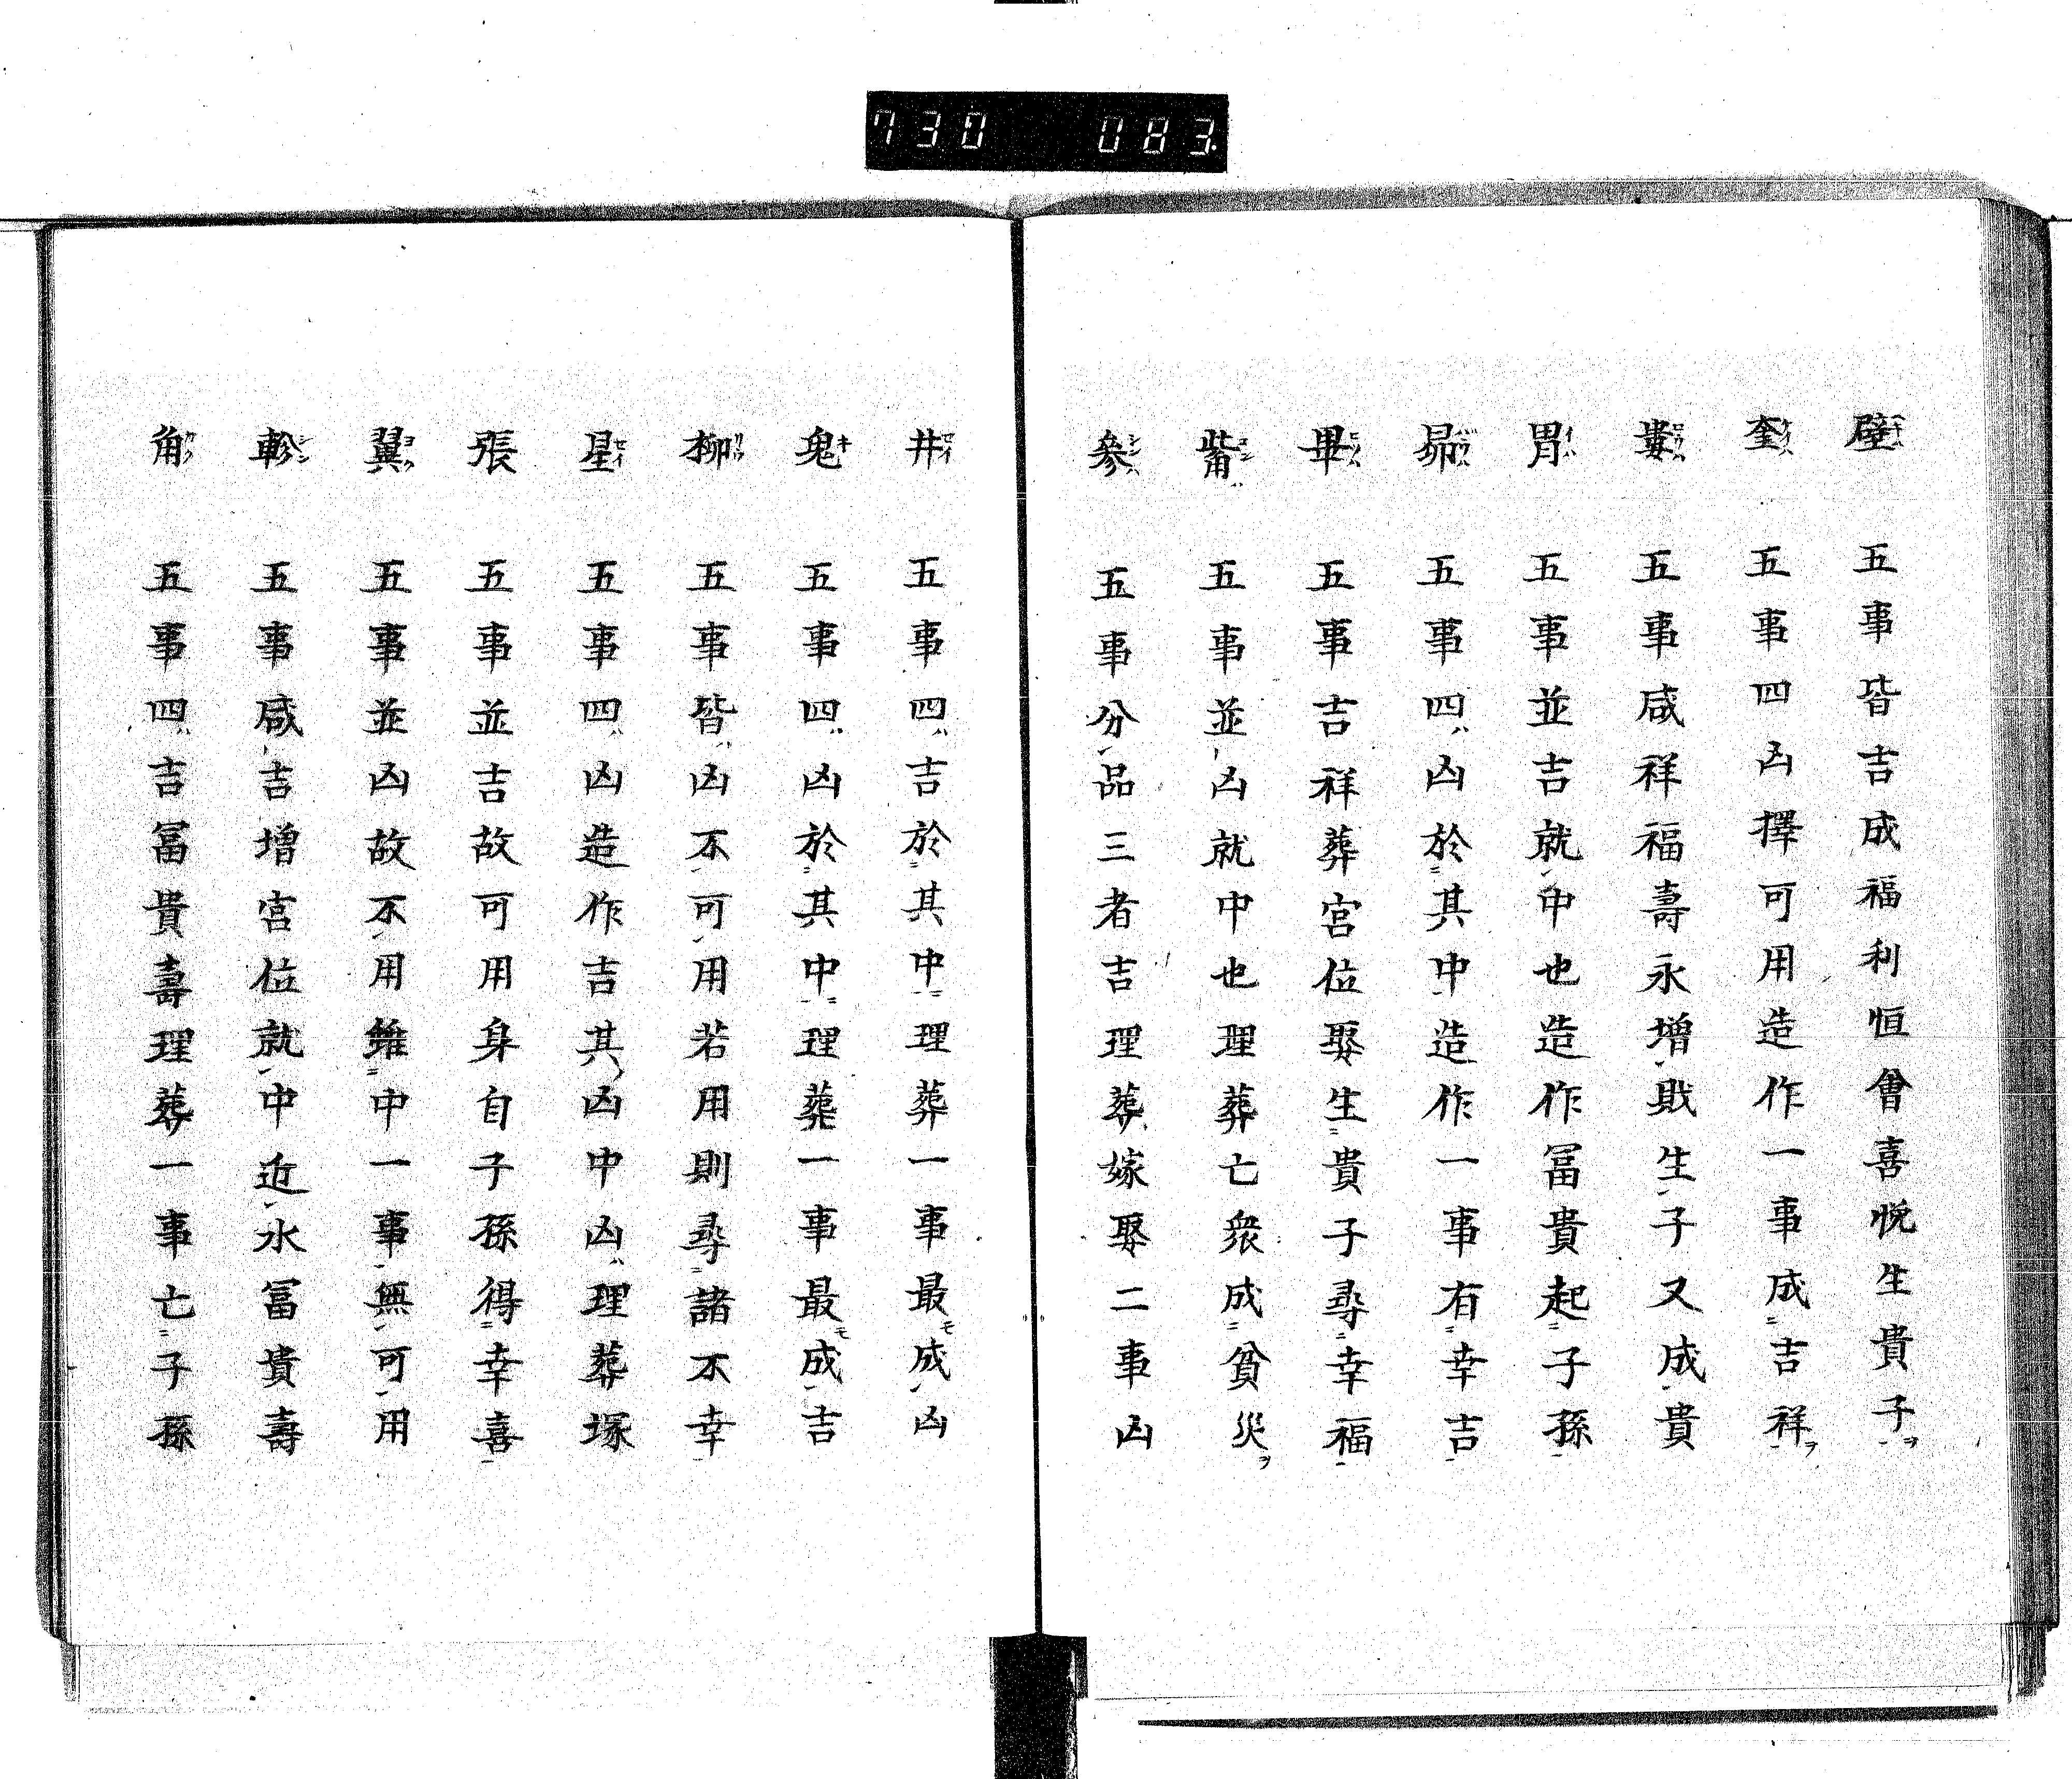 730 083
壁 五事皆吉成福利恒會喜悦生貴子
奎 五事四凶擇可用造作一事成吉祥
婁 五事咸祥福壽永增財生子又成貴
胃 五事並吉就中也造作冨貴起子孫
昴 五事四凶於其中造作一事有幸吉
畢 五事吉祥葬宮位娶生貴子尋幸福
觜 五事並凶就中也理葬亡衆成貧災
參 五事分品三者吉理葬嫁娶二事凶
井 五事四吉於其中理葬一事最成凶
鬼 五事四凶於其中理葬一事最成吉
柳 五事皆凶不可用若用則尋諸不幸
星 五事四凶造作吉其凶中凶理葬塚
張 五事並吉故可用身自子孫得幸喜
翼 五事並凶故不用雖中一事無可用
軫 五事咸吉增宮位就中近水冨貴壽
角 五事四吉冨貴壽理葬一事亡子孫